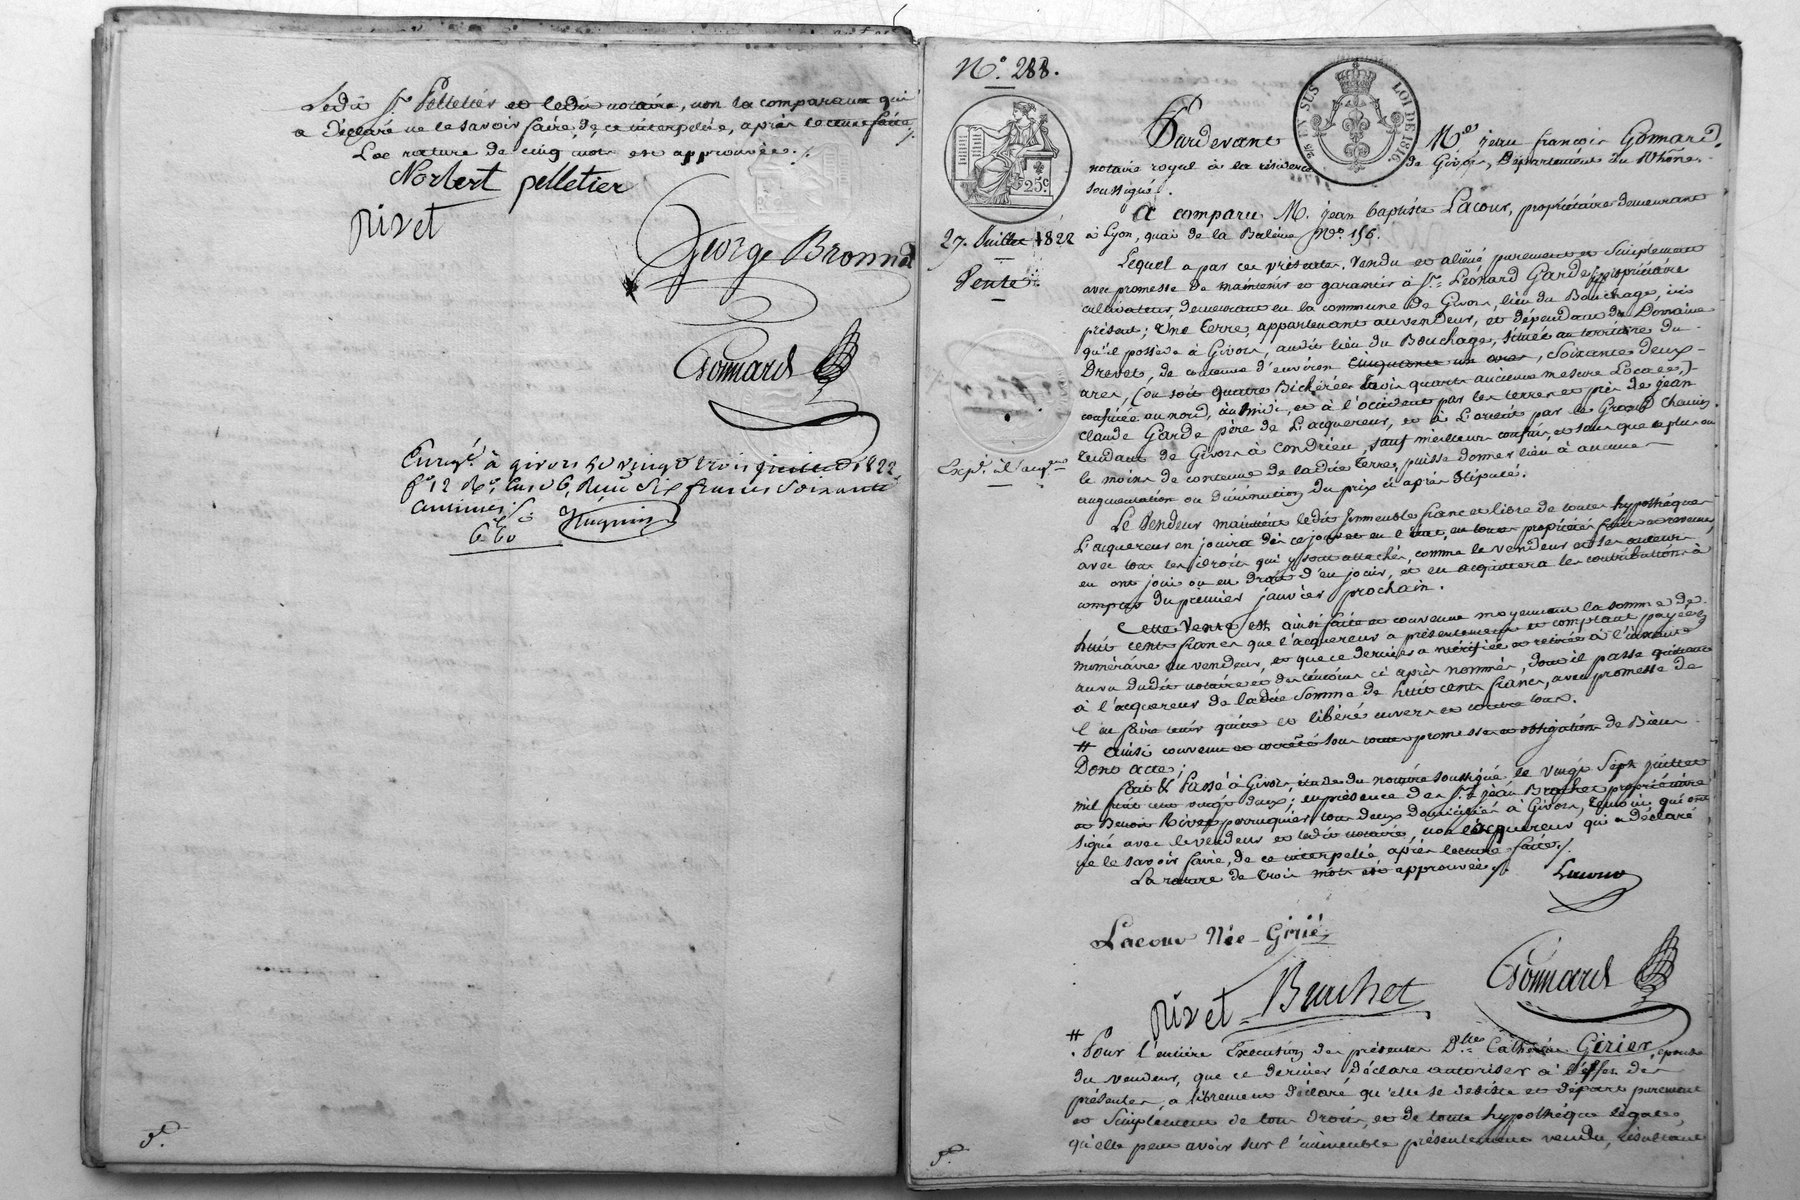 Ledit Sr Pelletier et ledit notaire, non la comparante qui
a déclaré ne le savoir faire, de ce interpelée, après lecture faite
La rature de cinq mots est approuvée.
Norbert pelletier
Rivet
George Bronnod
Gomard
Enregé. à givors le vingt trois juillet 1822
fo 12 Ro. Case 6, Reçu six francs soixante
centimes
6f. 60 Huguin
N.o 288.
25 EN SUS LOI DE 1816
25c.
Pardevant Me. jean françois Gomard,
notaire royal à la résidence de Givors, Département du Rhône,
soussigné.
A comparu M. jean baptiste Lacour, propriétaire demeurant
à Lyon, quai de la Baleine No. 156.
27. Juillet 1822
Vente
Lequel a par ces présentes, vendu et aliéné purement et simplement
avec promesse de maintenir et garantir à Sr. Léonard Garde, propriétaire
cultivateur, demeurant en la commune de Givors, lieu du Bouchage, ici
présent; une terre, appartenant au vendeur, et dépendant du Domaine
qu'il possède à Givors, audit lieu du Bouchage, située au territoire du
Drevet, de contenue d'environ cinquante un ares, soixante deux
ares, (ou soit quatre Bicherées trois quarts ancienne mesure Locale,)
confinée au nord, au midi, et à l'occident par les terres et près de jean
claude Garde père de L'acquereur, et à L'orient par le Grand Chemin
tendant de Givors à Condrieu, sauf meilleurs confins, et sans que le plus ou
le moins de contenue de ladite terre, puisse donner lieu à aucune
augmentation ou diminution du prix ci après stipulé.
Expé. à l'acqr
Le Vendeur maintient ledit Immeuble franc et libre de toutes hypothèques
L'acquereur en jouira dès ce jour et en l'état, en toute propriété fruits et revenus,
avec tous les droits qui y sont attachés, comme le vendeur et ses auteurs
en ont joui ou eu droit d'en jouir, et en acquittera les contributions à
compter du premier janvier prochain.
Cette Vente est ainsi faite et convenue moyennant la somme de
huit cents francs que l'acquereur a présentement et comptant payée en
numéraire au vendeur, et que ce dernier a vérifiée et retirée à l'instant
au vu dudit notaire et des témoins ci après nommés, dont il passe quittance
à l'acquereur de ladite somme de huit cents francs, avec promesse de
l'en faire tenir quitte et libéré envers et contre tous.
# ainsi convenu et arrêté sous toutes promesses et obligations de Biens
Dont acte;
Fait & Passé à Givors, étude du notaire soussigné, le vingt sept juillet
mil huit cent vingt deux; en présence des Srs. jean Brachet propriétaire
et Benoit Rivet perruquier tous deux domiciliés à Givors, témoins qui ont
signé avec le vendeur et ledit notaire, non l'acquereur qui a déclaré
ne le savoir faire, de ce interpelé, après lecture faite.
La rature de trois mots est approuvée.
Lacour
Lacour Née Girié
Rivet Brachet Gomard
# Pour l'entière Exécution des présentes Dlle. Catherine Girier, épouse
du vendeur, que ce dernier Déclare autoriser à l'effet des
présentes, a librement déclaré qu'elle se désiste et départ purement
et Simplement de tous droits, et de toute hypothèque légale,
qu'elle peut avoir sur l'immeuble présentement vendu, résultant